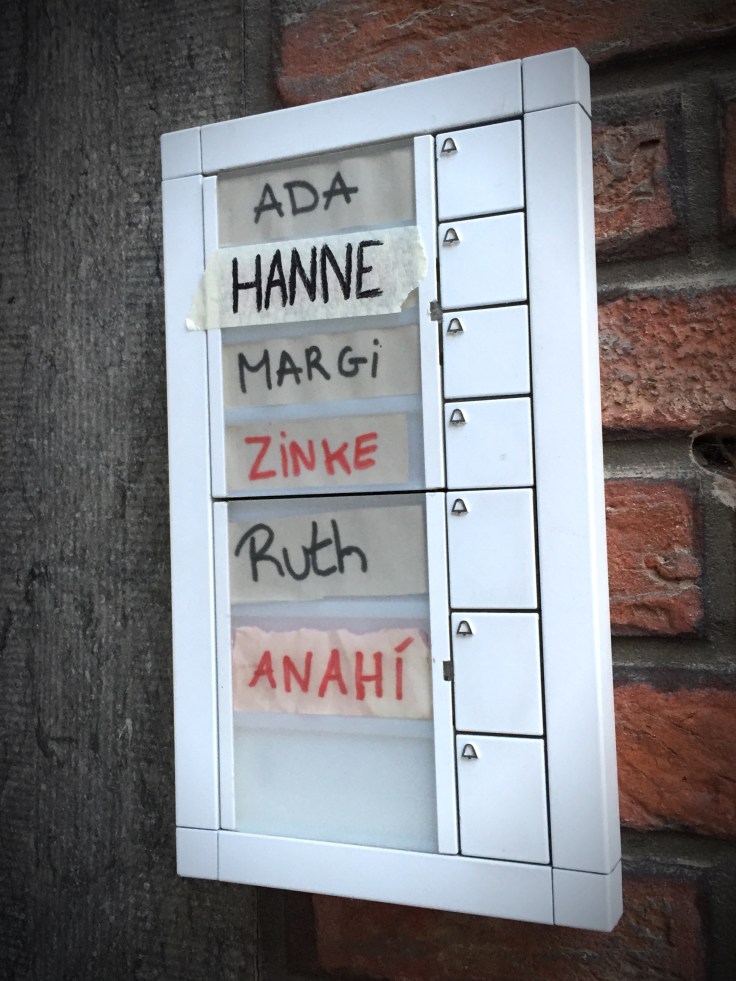 ADA
HANNE
MARGi
ZiNKE
Ruth
ANAHÍ